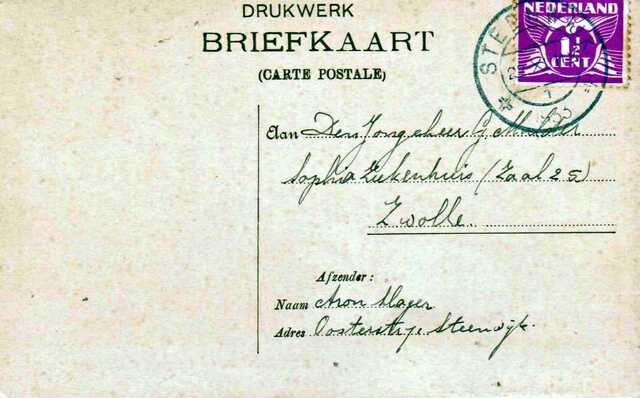 DRUKWERK
BRIEFKAART
(CARTE POSTALE)
NEDERLAND
1½
CENT
STE
1
Aan Den Jongeheer G. Mulder
Sophia Ziekenhuis (Zaal 25)
Zwolle.
Afzender:
Naam Aron Slager
Adres Oosterstr. Steenwijk.